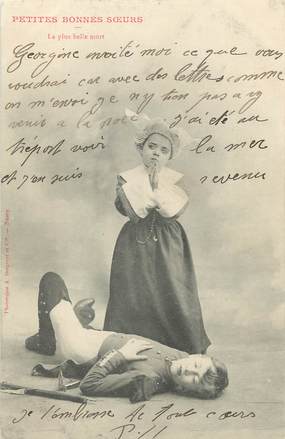 PETITES BONNES SŒURS
La plus belle mort
Georgine invité moi ce que vous
voudrai car avec des lettres comme
on m'envoi je n'y tien pas a y
venir a la j'ai été au
tréport voir la mer
et j'en suis revenu
Phototypie A. Bergeret et Cie. — Nancy
je t'embrasse de tout cœurs